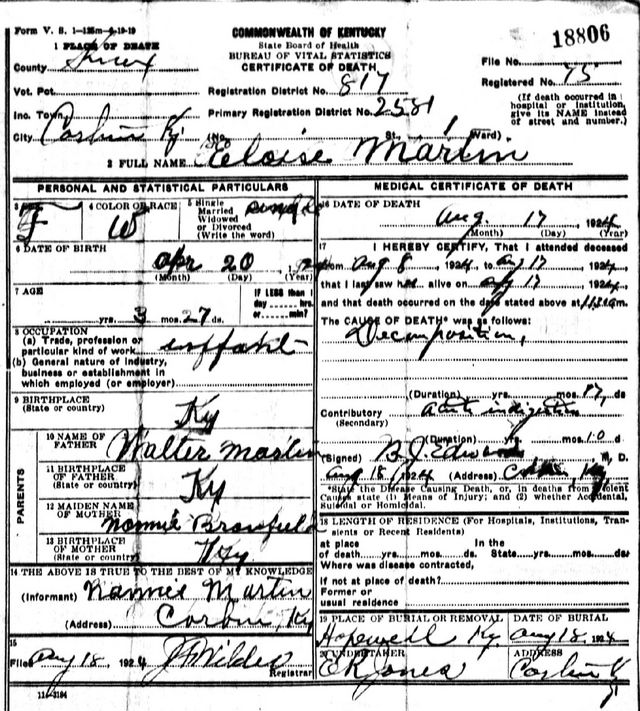 Form V. S. 1-125m-6-19-19
COMMONWEALTH OF KENTUCKY
State Board of Health
BUREAU OF VITAL STATISTICS
CERTIFICATE OF DEATH
18806
1 PLACE OF DEATH
County
File No.
Registration District No. 817
Registered No. 75
Vot. Pct.
Primary Registration District No. 2581
(If death occurred in hospital or institution, give its NAME instead of street and number.)
Inc. Town
City Corbin Ky. (No. St., Ward)
2 FULL NAME Eloise Martin
PERSONAL AND STATISTICAL PARTICULARS
3 F
4 COLOR OR RACE W
5 Single Married Widowed or Divorced (Write the word) single
6 DATE OF BIRTH
Apr 20
(Month) (Day) (Year)
7 AGE
yrs. 3 mos. 27 ds.
IF LESS than 1 day hrs. or min?
8 OCCUPATION
(a) Trade, profession or particular kind of work
(b) General nature of industry, business or establishment in which employed (or employer)
9 BIRTHPLACE
(State or country) Ky
PARENTS
10 NAME OF FATHER Walter Martin
11 BIRTHPLACE OF FATHER
(State or country) Ky
12 MAIDEN NAME OF MOTHER
13 BIRTHPLACE OF MOTHER
(State or country) Ky
14 THE ABOVE IS TRUE TO THE BEST OF MY KNOWLEDGE
(Informant) Nannie Martin
(Address) Corbin, Ky
15
Filed Aug 18, 1924 J Wilder
Registrar
11-3184
MEDICAL CERTIFICATE OF DEATH
16 DATE OF DEATH
Aug. 17, 1924
(Month) (Day) (Year)
17 I HEREBY CERTIFY, That I attended deceased
from Aug 8, 1924, to Aug 17, 1924,
that I last saw h alive on Aug 17, 1924,
and that death occurred on the date stated above at m.
The CAUSE OF DEATH* was as follows:
Decomposition,
(Duration) yrs. mos. ds.
Contributory acute indigestion
(Secondary)
(Duration) yrs. mos. 10 d.
(Signed) B. J. Edwards, M. D.
Aug 18, 1924 (Address) Corbin, Ky,
*State the Disease Causing Death, or, in deaths from Violent Causes state (1) Means of Injury; and (2) whether Accidental, Suicidal or Homicidal.
18 LENGTH OF RESIDENCE (For Hospitals, Institutions, Transients or Recent Residents)
at place of death yrs. mos. ds. In the State yrs. mos. ds.
Where was disease contracted,
if not at place of death?
Former or usual residence
19 PLACE OF BURIAL OR REMOVAL
DATE OF BURIAL
Hopewell Ky. Aug 18, 1924
20 UNDERTAKER
ADDRESS
E R Jones Corbin Ky